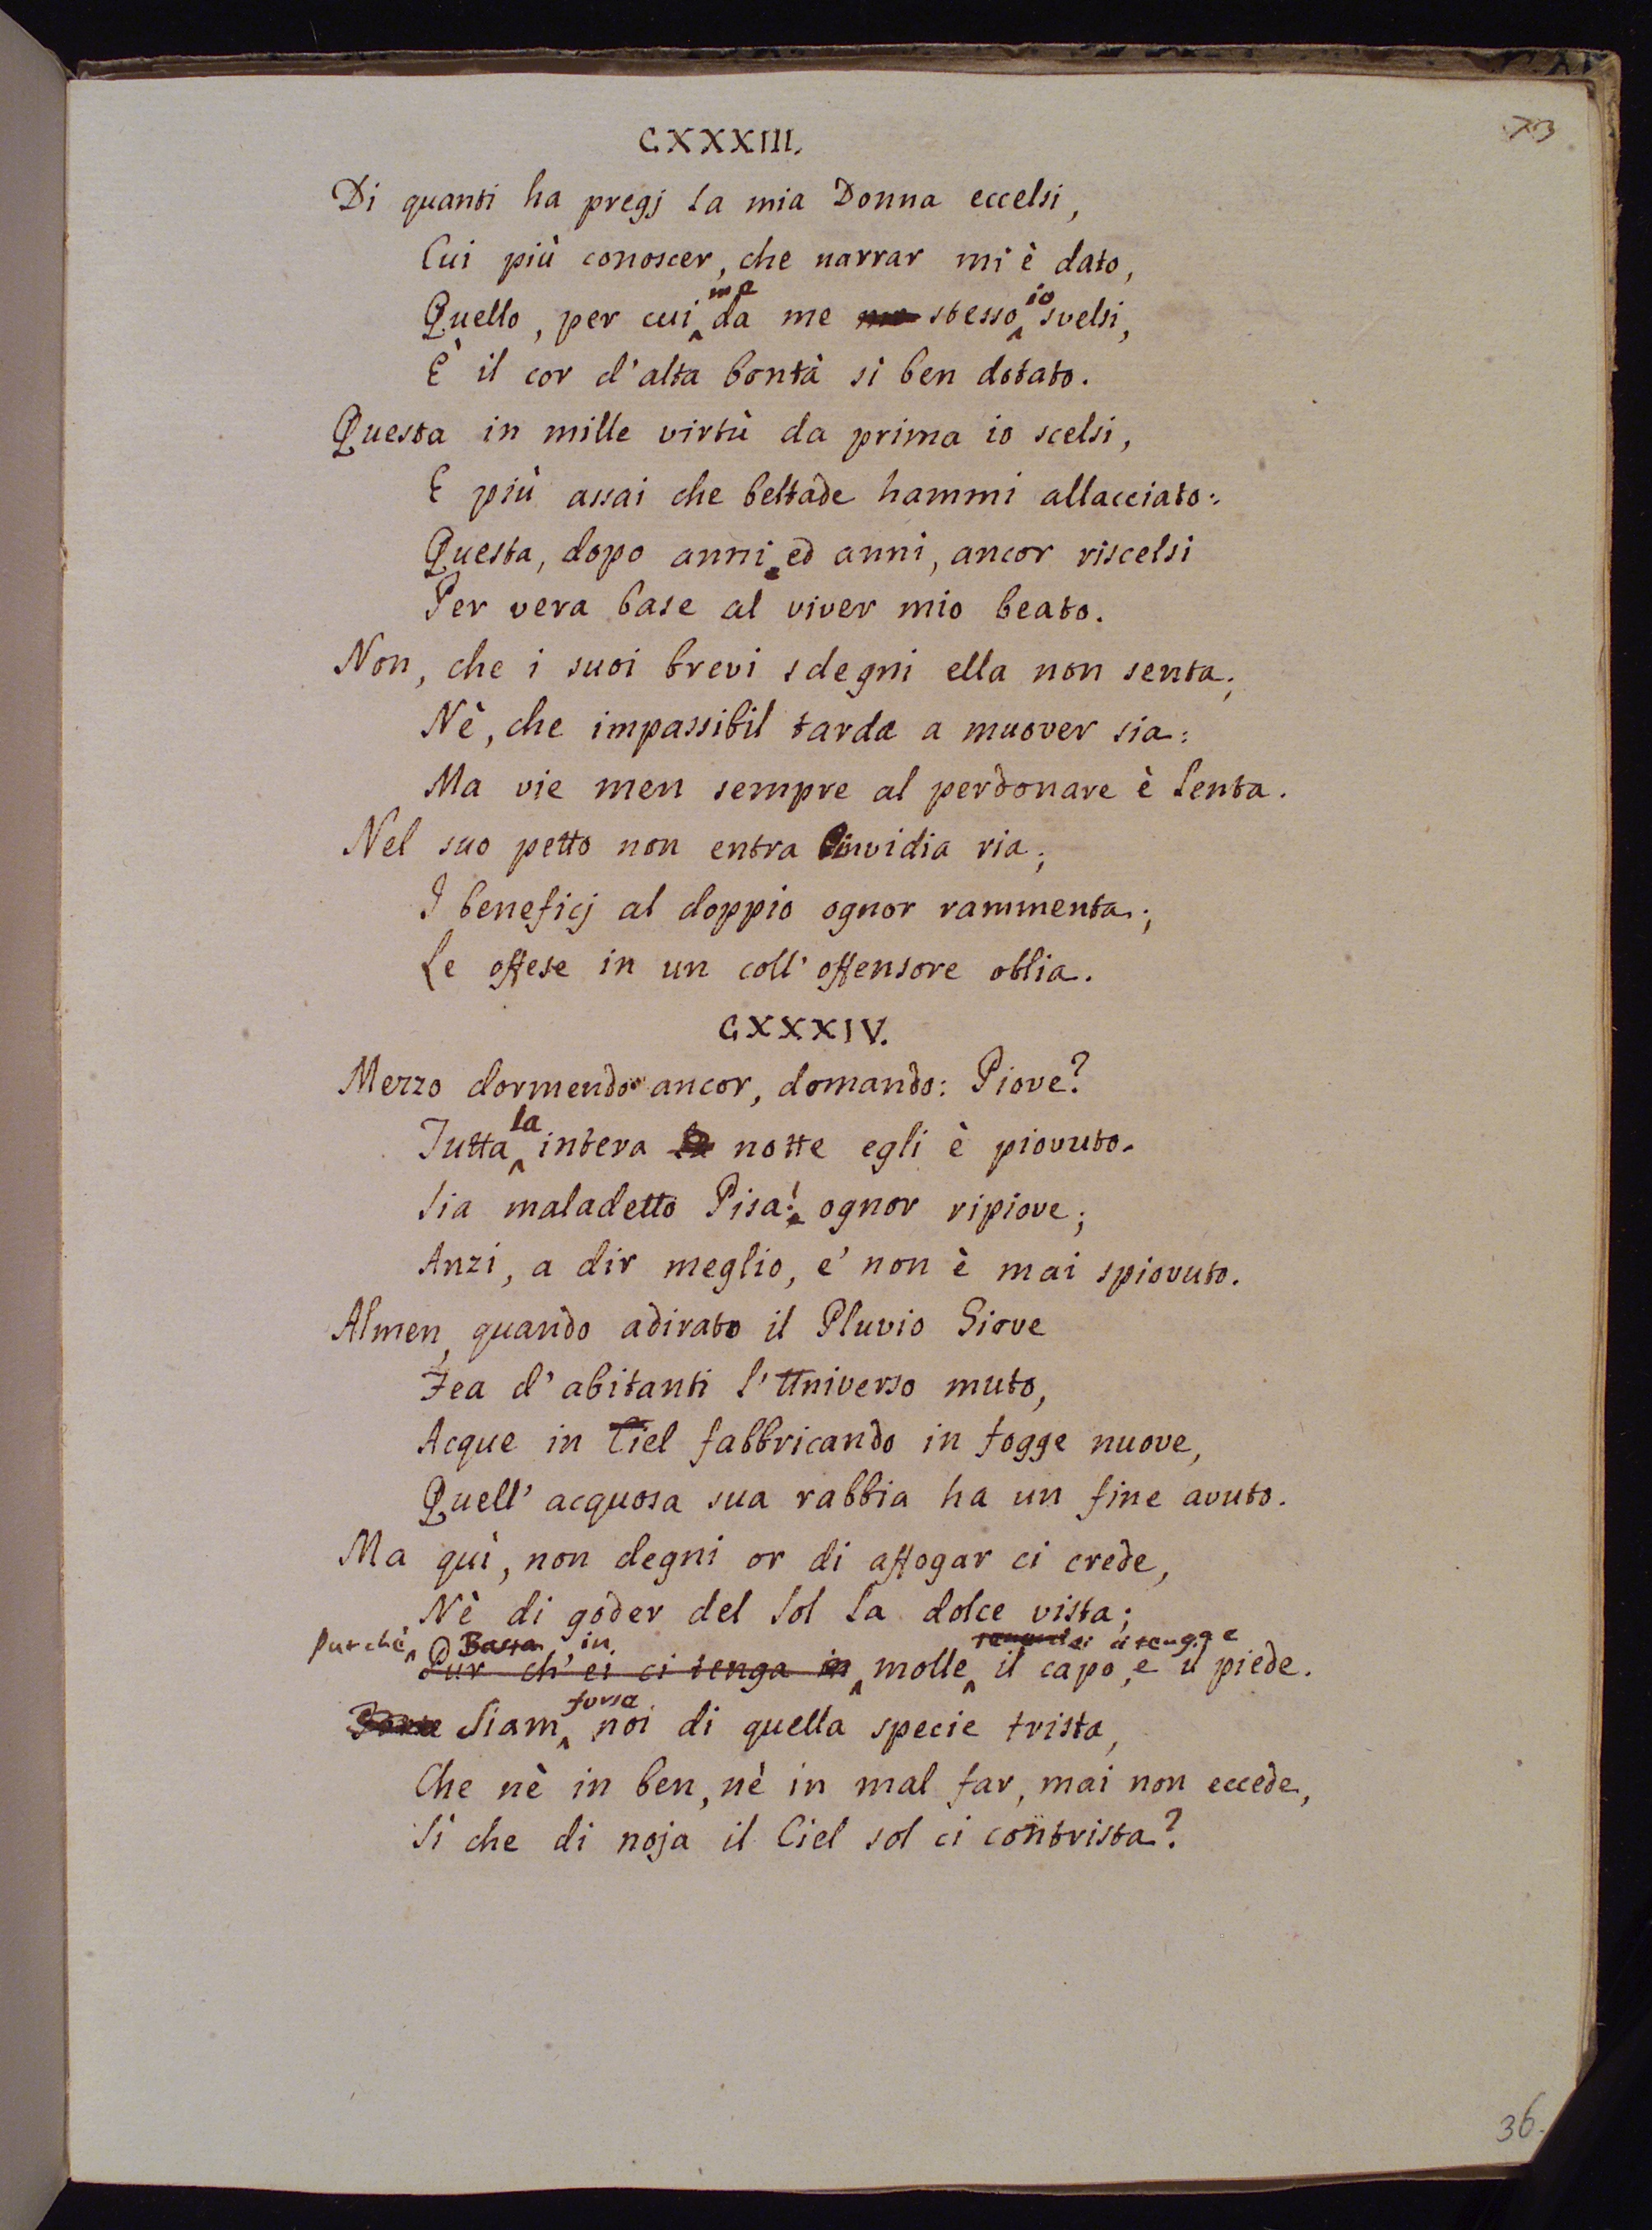 73
CXXXIII.
Di quanti ha pregj la mia Donna eccelsi,
Cui più conoscer, che narrar mi è dato,
Quello, per cui me da me stesso io svelsi,
È il cor d'alta bontà si ben dotato.
Questa in mille virtù da prima io scelsi,
E più assai che beltade hammi allacciato:
Questa, dopo anni ed anni, ancor riscelsi
Per vera base al viver mio beato.
Non, che i suoi brevi sdegni ella non senta;
Nè, che impassibil tarda a muover sia:
Ma vie men sempre al perdonare è lenta.
Nel suo petto non entra invidia ria;
I beneficj al doppio ognor rammenta;
Le offese in un coll' offensore oblia.
CXXXIV.
Mezzo dormendo ancor, domando: Piove?
Tutta la intera la notte egli è piovuto.
Sia maladetto Pisa! ognor ripiove;
Anzi, a dir meglio, e' non è mai spiovuto.
Almen, quando adirato il Pluvio Giove
Fea d'abitanti l'Universo muto,
Acque in Ciel fabbricando in fogge nuove,
Quell' acquosa sua rabbia ha un fine avuto.
Ma quì, non degni or di affogar ci crede,
Nè di goder del Sol la dolce vista;
Purchè Basta in
Pur ch' ei ci tenga in molle il capo, e il piede.
Siam forse noi di quella specie trista,
Che nè in ben, nè in mal far, mai non eccede,
Sì che di noja il Ciel sol ci contrista?
36.